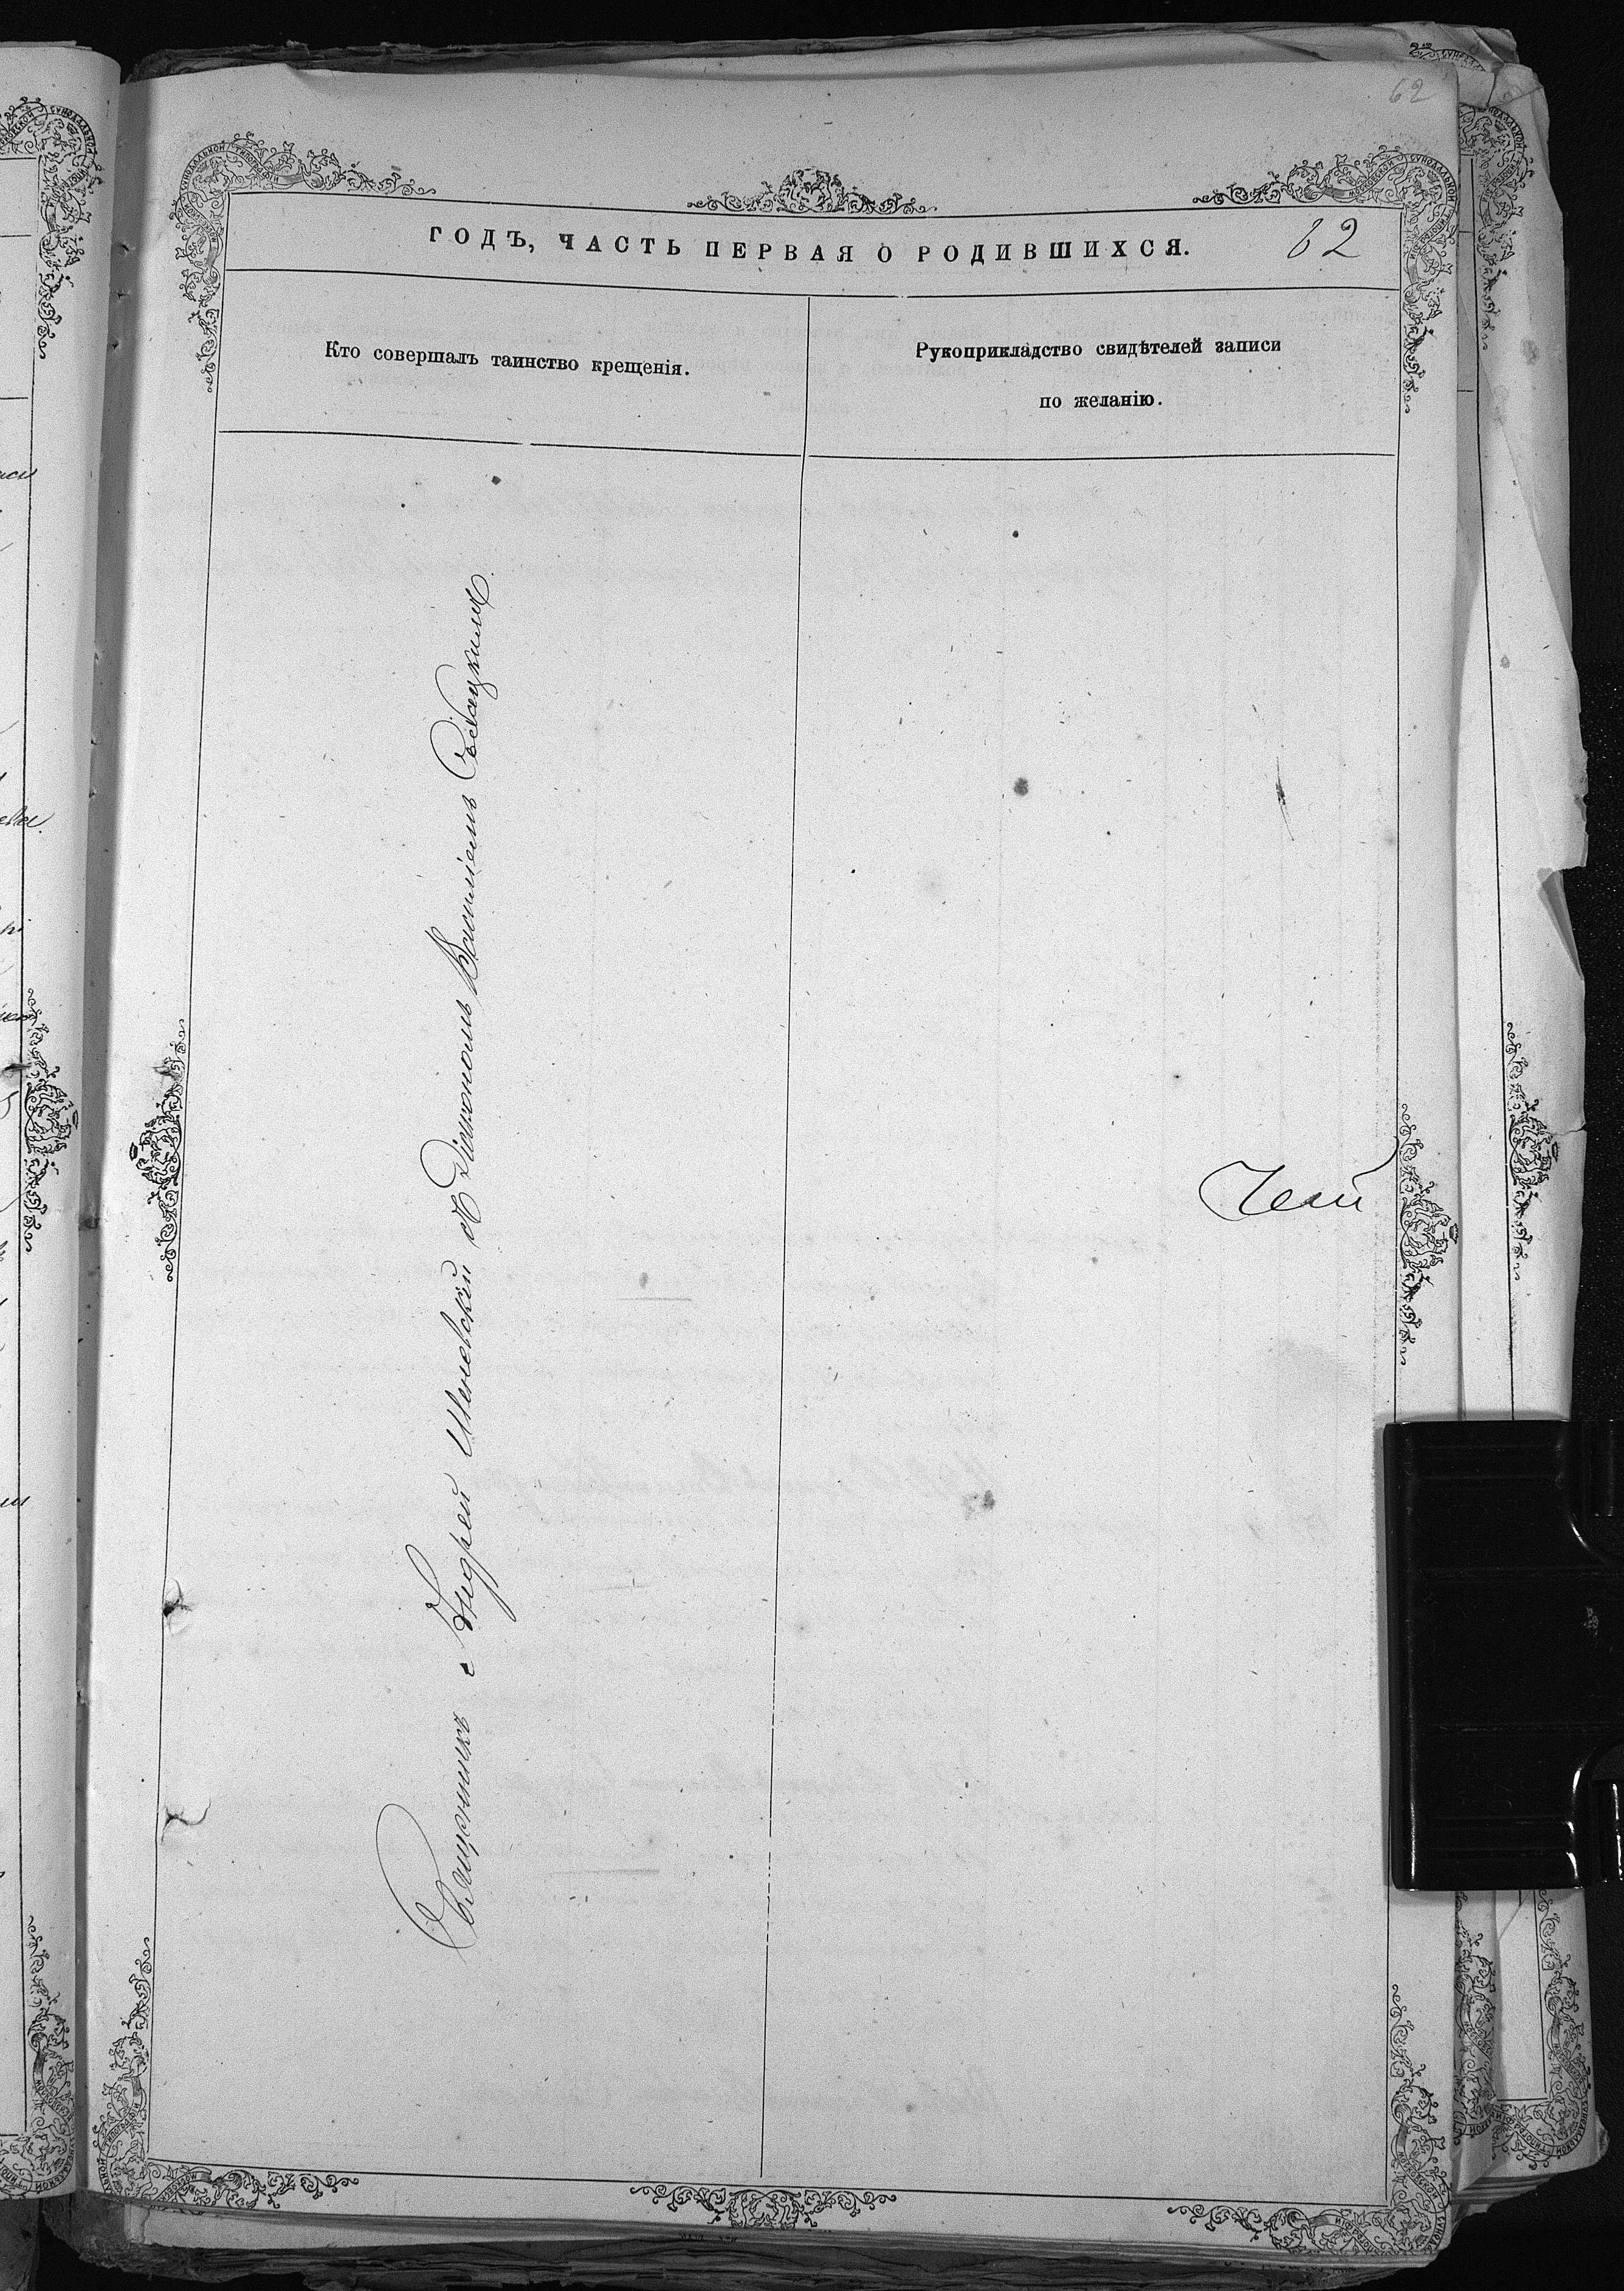 62
ГОДЪ, ЧАСТЬ ПЕРВАЯ О РОДИВШИХСЯ.
62
Кто совершалъ таинство крещенія.
Рукоприкладство свидѣтелей записи
по желанію.
Священникъ Андрей Шеневскій съ Діакономъ Василіемъ